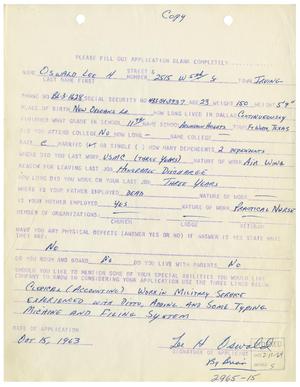 Copy
PLEASE FILL OUT APPLICATION BLANK COMPLETELY
NAME Oswald Lee H STREET & NUMBER 2515 W 5th S TOWN Irving
LAST NAME FIRST
PHONE NO BL-3-1628 SOCIAL SECURITY NO AGE 23 WT 150 HT 5'9"
PLACE OF BIRTH New Orleans La HOW LONG LIVED IN DALLAS Continuously
FINISHED WHAT GRADE IN SCHOOL 11th NAME SCHOOL Arlington Heights Ft Worth, Texas
DID YOU ATTEND COLLEGE No HOW LONG - NAME OF COLLEGE -
MARRIED OR SINGLE ( ) HOW MANY DEPENDENTS 2 Dependents
WHERE DID YOU LAST WORK USMC (Three Years) NATURE OF WORK Air Wing
REASON FOR LEAVING LAST JOB Honorable Discharge
HOW LONG DID YOU WORK ON YOUR LAST JOB Three Years
WHERE IS YOUR FATHER EMPLOYED Dead NATURE OF WORK
IS YOUR MOTHER EMPLOYED Yes NATURE OF WORK Practical Nurse
MEMBER OF ORGANIZATIONS: CHURCH LODGE
HAVE YOU ANY PHYSICAL DEFECTS (ANSWER YES OR NO) IF ANSWER IS YES STATE WHAT
THEY ARE.
No
DO YOU ROOM AND BOARD No DO YOU LIVE WITH PARENTS No
SHOULD YOU LIKE TO MENTION SOME OF YOUR SPECIAL ABILITIES YOU WOULD LIKE
COMPANY TO KNOW IN CONSIDERING YOUR APPLICATION USE THE THREE LINES BELOW
Clerical (Accounting) Work in Military Service
Experienced with Ditto, Adding and Some Typing
Machine and Filing System
DATE OF APPLICATION
Oct 15, 1963
Lee H Oswald
SIGNATURE OF APPLICANT
2965-15